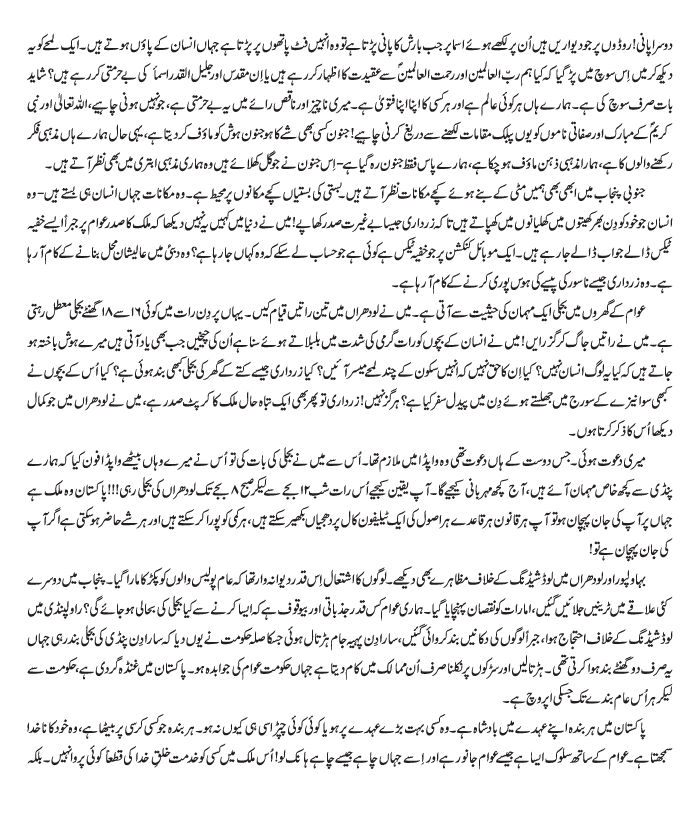 دوسرا پانی! روڈوں پر جو دیواریں ہیں اُن پر لکھے ہوئے اسما پر جب بارش کا پانی پڑتا ہے تو وہ انہیں فٹ پاتھوں پر پڑتا ہے جہاں انسان کے پاؤں ہوتے ہیں۔ ایک لمحے کو یہ
دیکھ کر میں اِس سوچ میں پڑ گیا کہ کیا ہم ربّ العالمین اور رحمت العالمینؐ سے عقیدت کا اظہار کر رہے ہیں یا اِن مقدس اور جلیل القدر اسما ٔ کی بے حرمتی کر رہے ہیں؟ شاید
بات صرف سوچ کی ہے۔ ہمارے ہاں ہر کوئی عالم ہے اور ہر کسی کا اپنا اپنا فتویٰ ہے۔ میری ناچیز اور ناقص رائے میں یہ بے حرمتی ہے، جو نہیں ہونی چاہیے، اللہ تعالیٰ اور نبی
کریمؐ کے مبارک اور صفاتی ناموں کو یوں پبلک مقامات لکھنے سے دریغ کرنی چاہیے! جنون کسی بھی شے کا ہو جنون ہوش کو ماؤف کر دیتا ہے، یہی حال ہمارے ہاں مذہبی فکر
رکھنے والوں کا ہے، ہمارا مذہبی ذہن ماؤف ہو چکا ہے، ہمارے پاس فقط جنون رہ گیا ہے-اِس جنون نے جو گل کھلائے ہیں وہ ہماری مذہبی ابتری میں بھی نظر آتے ہیں۔
جنوبی پنجاب میں ابھی بھی ہمیں مٹی کے بنے ہوئے کچے مکانات نظر آتے ہیں۔ بستی کی بستیاں کچے مکانوں پر محیط ہے۔ وہ مکانات جہاں انسان ہی بستے ہیں-وہ
انسان جو خود کو دِن بھر کھیتوں میں کھلیانوں میں کھپاتے ہیں تا کہ زرداری جیسا بے غیرت صدر کھا پے! میں نے دنیا میں کہیں یہ نہیں دیکھا کہ ملک کا صدر عوام پر جبراً ایسے خفیہ
ٹیکس ڈالے جو اب ڈالے جا رہے ہیں۔ ایک موبائل کنکشن پر جو خفیہ ٹیکس ہے کوئی ہے جو حساب لے سکے کہ وہ کہاں جا رہا ہے؟ وہ دبئی میں عالیشان محل بنانے کے کام آ رہا
ہے۔ وہ زرداری جیسے ناسور کی پیسے کی ہوس پوری کرنے کے کام آ رہا ہے۔
عوام کے گھروں میں بجلی ایک مہمان کی حیثیت سے آتی ہے۔ میں نے لودھراں میں تین راتیں قیام کیں۔ یہاں پر دِن رات میں کوئی ۱۶ سے ۱۸ گھنٹے بجلی معطل رہتی
ہے۔ میں نے راتیں جاگ کر گزرایں! میں نے انسان کے بچوں کو رات گرمی کی شدت میں بلبلاتے ہوئے سنا ہے اُن کی چیخیں جب بھی یاد آتی ہیں میرے ہوش باختہ ہو
جاتے ہیں کہ کیا یہ لوگ انسان نہیں؟ کیا اِن کا حق نہیں کہ انہیں سکون کے چند لمحے میسر آئیں؟ کیا زرداری جیسے کتے کے گھر کی بجلی کبھی بند ہوئی ہے؟ کیا اُس کے بچوں نے
کبھی سوا نیزے کے سورج میں جھلستے ہوئے دِن میں پیدل سفر کیا ہے؟ ہرگز نہیں! زرداری تو پھر بھی ایک تباہ حال ملک کا کرپٹ صدر ہے، میں نے لودھراں میں جو کمال
دیکھا اُس کا ذکر کرتا ہوں۔
میری دعوت ہوئی۔ جس دوست کے ہاں دعوت تھی وہ واپڈا میں ملازم تھا۔ اُس سے میں نے بجلی کی بات کی تو اُس نے میرے وہاں بیٹھے واپڈا فون کیا کہ ہمارے
پنڈی سے کچھ خاص مہمان آئے ہیں، آج کچھ مہربانی کیجیے گا۔ آپ یقین کیجیے اُس رات شب ۱۲ بجے سے لیکر صبح ۸ بجے تک لودھراں کی بجلی رہی!!! پاکستان وہ ملک ہے
جہاں پر آپ کی جان پہچان ہو تو آپ ہر قانون ہر قاعدے ہر اصول کی ایک ٹیلیفون کال پر دھجیاں بکھیر سکتے ہیں، ہر کمی کو پورا کر سکتے ہیں اور ہر شے حاضر ہو سکتی ہے اگر آپ
کی جان پہچان ہے تو!
بہاولپور اور لودھراں میں لوڈ شیڈنگ کے خلاف مظاہرے بھی دیکھے۔ لوگوں کا اشتعال اِس قدر دیوانہ وار تھا کہ عام پولیس والوں کو پکڑ کا مارا گیا۔ پنجاب میں دوسرے
کئی علاقے میں ٹرینیں جلائیں گئیں، امارات کو نقصان پہنچایا گیا۔ ہماری عوام کس قدر جذباتی اور بیوقوف ہے کہ ایسا کرنے سے کیا بجلی کی بحالی ہو جائے گی؟ راولپنڈی میں
لوڈ شیڈنگ کے خلاف احتجاج ہوا، جبراً لوگوں کی دکانیں بند کروائی گئیں، سارا دِن پہیہ جام ہڑتال ہوئی جسکا صلہ حکومت نے یوں دیا کہ سارا دِن پنڈی کی بجلی بند رہی جہاں
یہ صرف دو گھنٹے بند ہوا کرتی تھی۔ ہڑتالیں اور سڑکوں پر نکلنا صرف اُن ممالک میں کام دیتا ہے جہاں حکومت عوام کی جوابدہ ہو۔ پاکستان میں غنڈہ گردی ہے، حکومت سے
لیکر ہر اُس عام بندے تک جسکی اپروچ ہے۔
پاکستان میں ہر بندہ اپنے عہدے میں بادشاہ ہے۔ وہ کسی بہت بڑے عہدے پر ہو یا کوئی کوئی چپڑاسی ہی کیوں نہ ہو۔ ہر بندہ جو کسی کرسی پر بیٹھا ہے، وہ خود کا ناخدا
سمجھتا ہے۔ عوام کے ساتھ سلوک ایسا ہے جیسے عوام جانور ہے اور اِسے جہاں چاہے جیسے چاہے ہانک لو! اُس ملک میں کسی کو خدمت خلقِ خدا کی قطعاً کوئی پروا نہیں۔ بلکہ